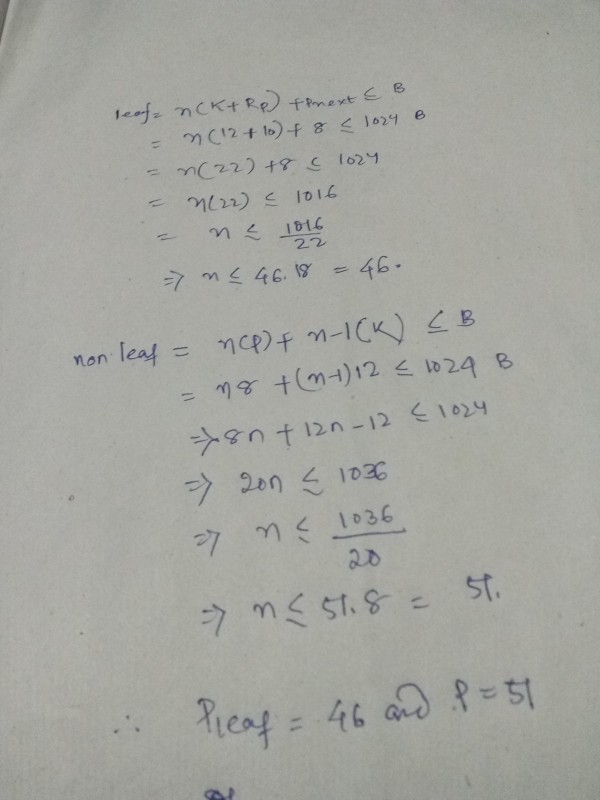 leaf = n(K+Rp) + Pnext ≤ B
= n(12+10) + 8 ≤ 1024 B
= n(22) + 8 ≤ 1024
= n(22) ≤ 1016
= n ≤ 1016/22
⇒ n ≤ 46.18 = 46.
non leaf = n(P) + n-1(K) ≤ B
= n8 + (n-1)12 ≤ 1024 B
⇒ 8n + 12n - 12 ≤ 1024
⇒ 20n ≤ 1036
⇒ n ≤ 1036/20
⇒ n ≤ 51.8 = 51.
∴ Pleaf = 46 and P = 51